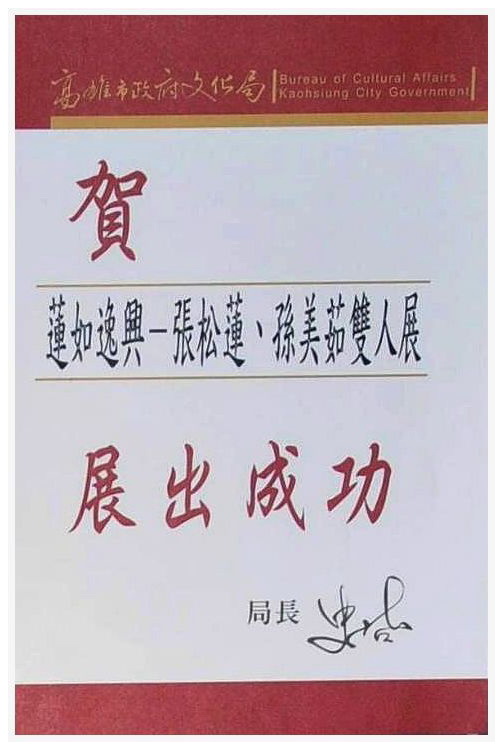 高雄市政府文化局
Bureau of Cultural Affairs
Kaohsiung City Government
賀
蓮如逸興－張松蓮、孫美茹雙人展
展出成功
局長 史哲